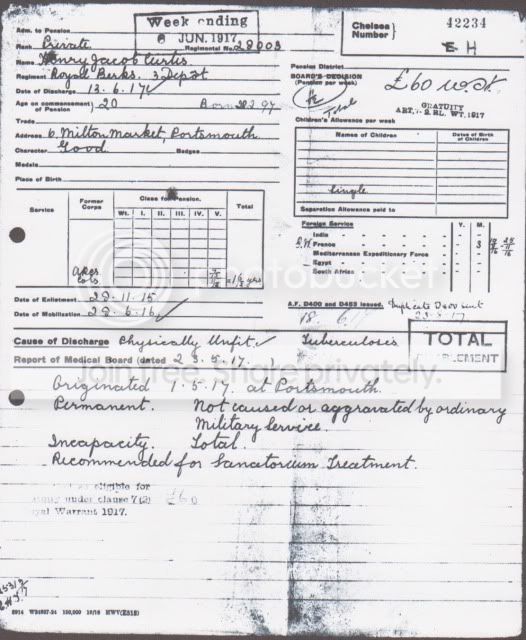 Adm. to Pension
Week ending
6 JUN. 1917
Chelsea Number } 42234
E H
Rank Private
Regimental No. 28003
Name Henry Jacob Curtis
Regiment Royal Berks. 3 Depot
Date of Discharge 13.6.17
Age on commencement of Pension } 20 Born
Trade
Address 6, Milton Market, Portsmouth
Character Good Badges
Medals
Place of Birth
Pension District
BOARD'S DECISION
(Pension per week)
Total
£60
GRATUITY
WT. 1917
Children's Allowance per week
Names of Children
Dates of Birth of Children
Single
Separation Allowance paid to
Service
Former Corps
Class for Pension.
Wt. I. II. III. IV. V.
Total
years
Foreign Service Y. M.
India
France 3
Mediterranean Expeditionary Force
Egypt
South Africa
Date of Enlistment 29.11.15
Date of Mobilization 29.6.16
A.F. D400 and D453 issued. Duplicate D400 sent
18. 6
Cause of Discharge Physically Unfit Tuberculosis
TOTAL
Report of Medical Board (dated 23.5.17.)
Originated 1.5.17. at Portsmouth.
Permanent. Not caused or aggravated by ordinary
Military Service.
Incapacity. Total.
Recommended for Sanatorium Treatment.
eligible for
under clause 7(2) £60
Warrant 1917.
photobucket
Join free. Share privately.